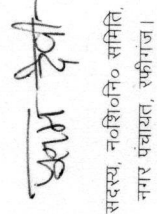 पूनम देवी
सदस्य, न०शि०नि० समिति,
नगर पंचायत, रफीगंज।